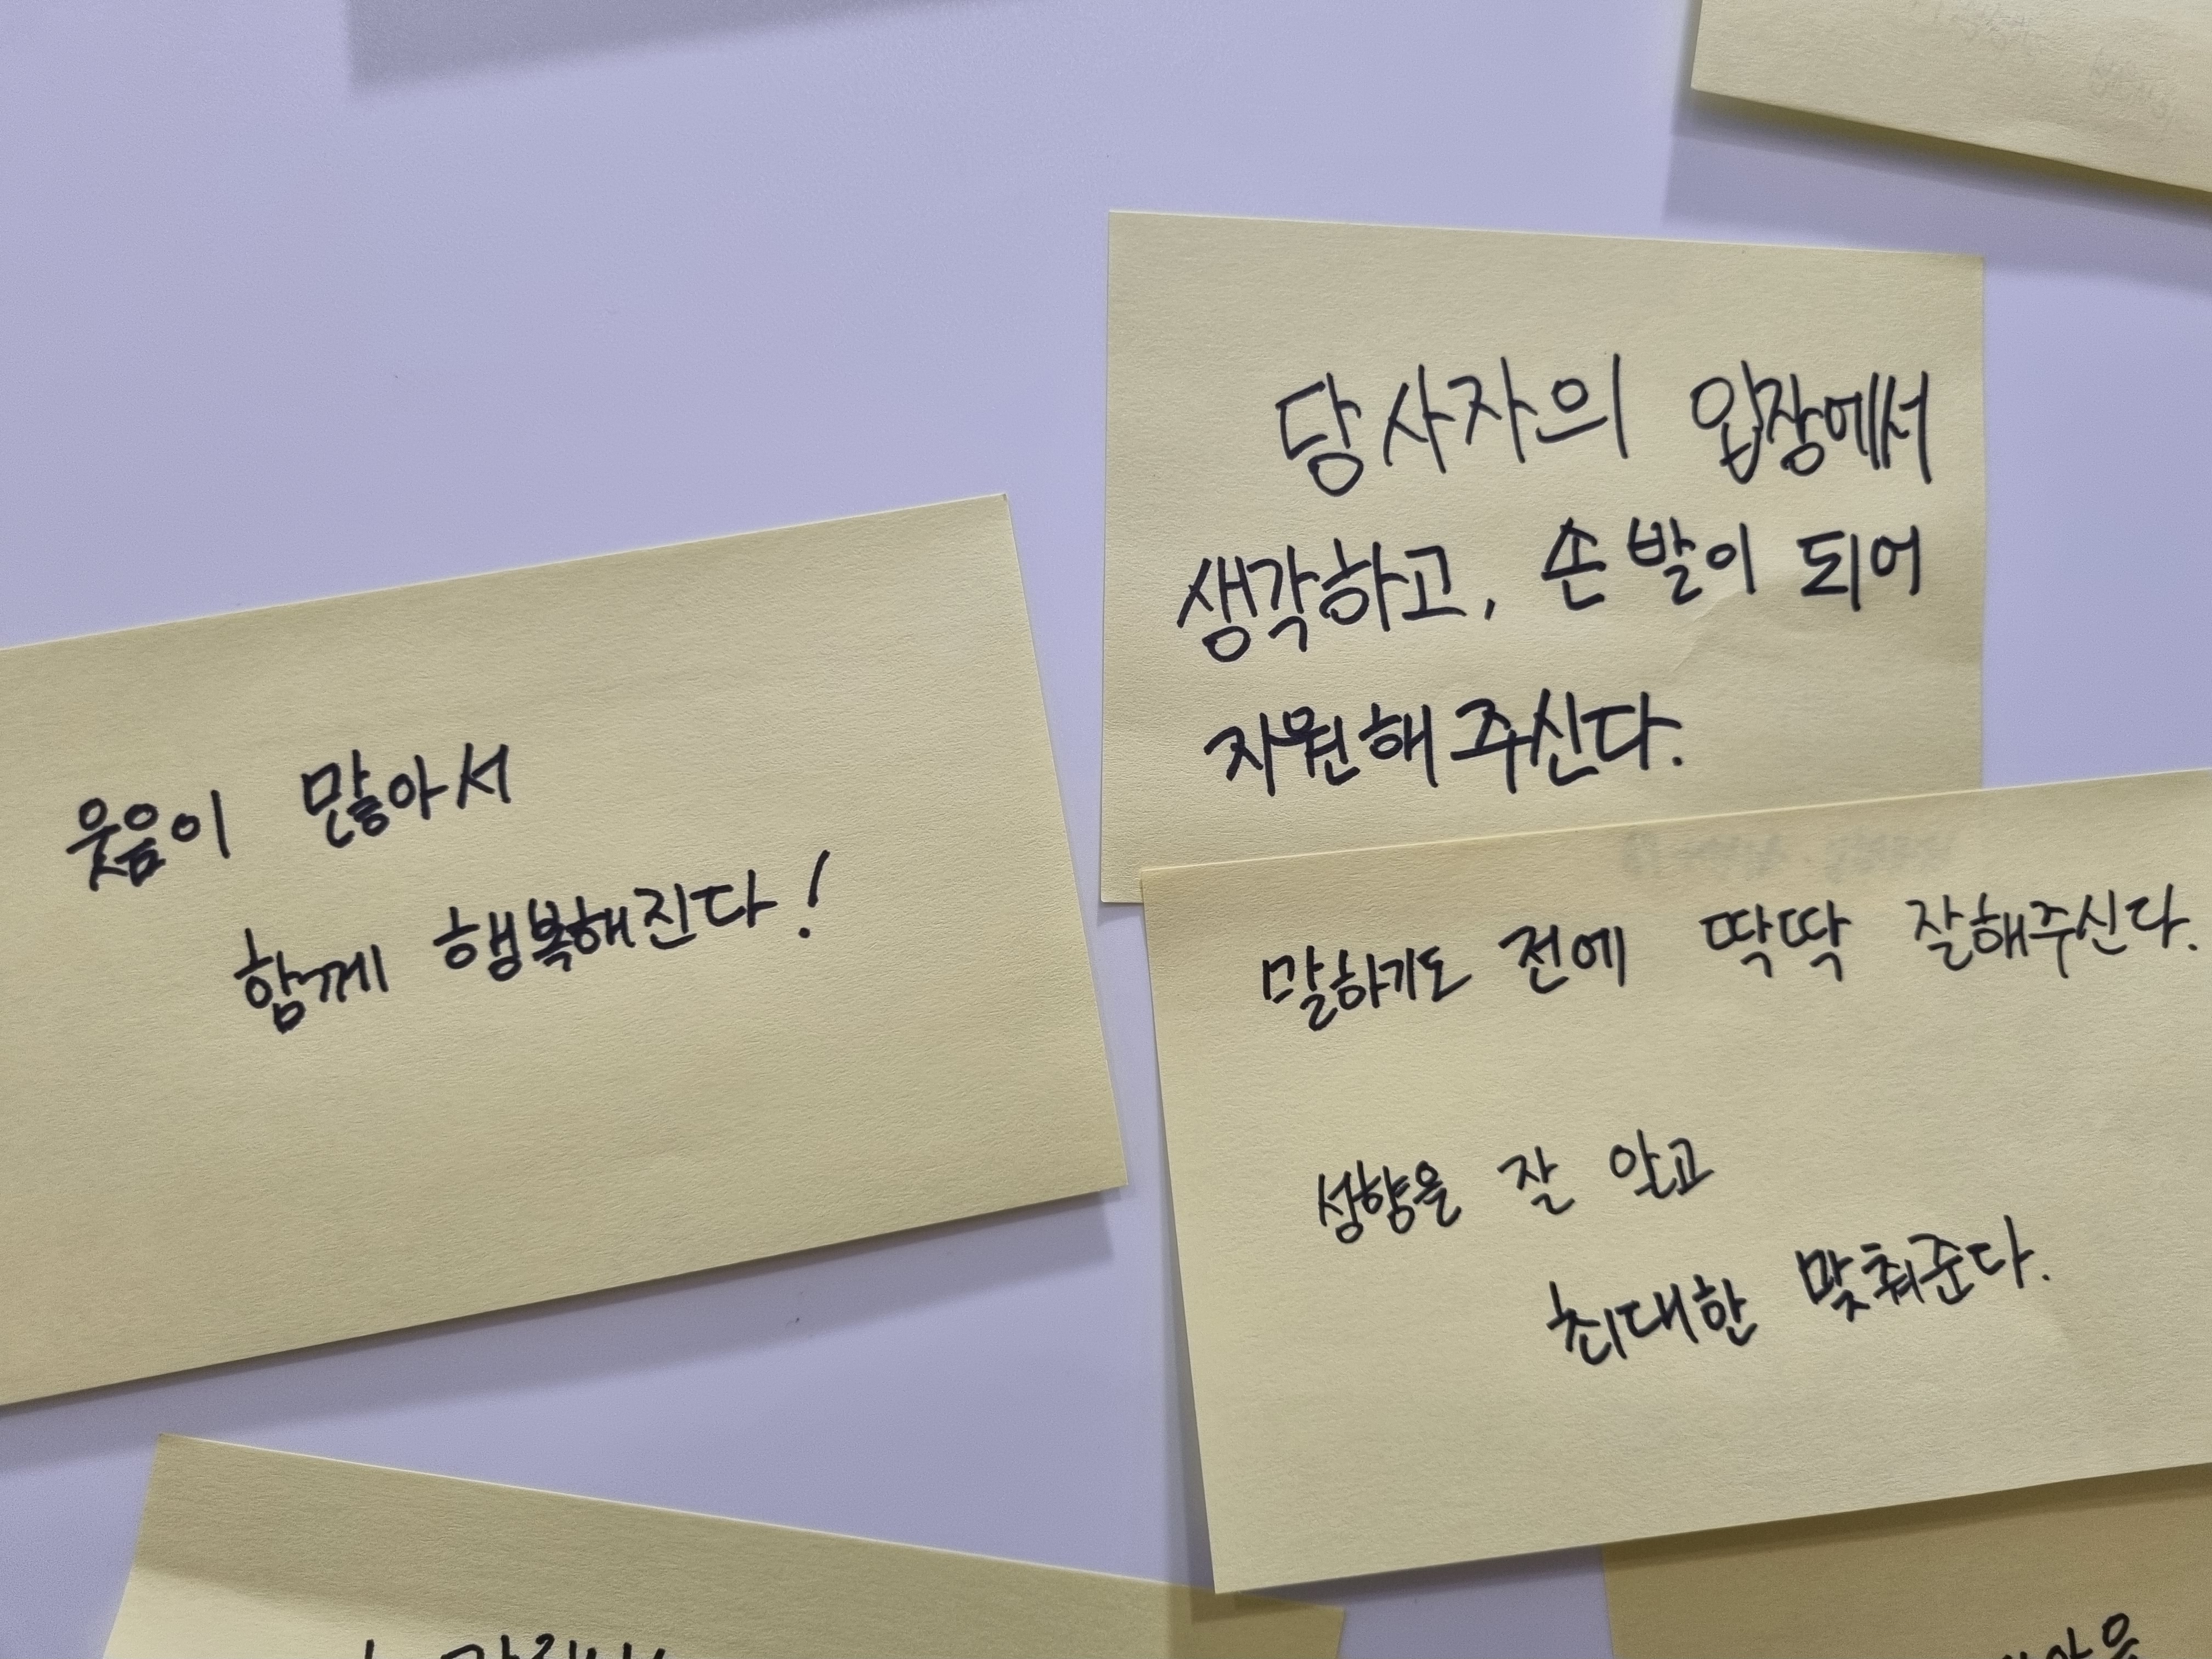 당사자의 입장에서
생각하고, 손발이 되어
지원해주신다.
웃음이 많아서
함께 행복해진다!
말하기도 전에 딱딱 잘해주신다.
성향을 잘 알고
최대한 맞춰준다.